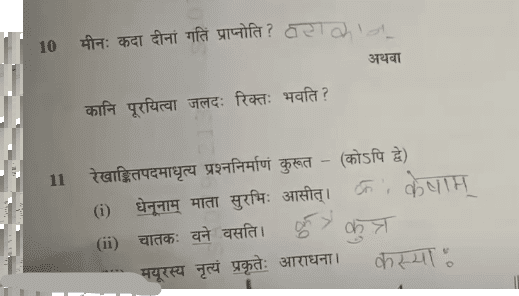 10 मीनः कदा दीनां गतिं प्राप्नोति ?
अथवा
कानि पूरयित्वा जलदः रिक्तः भवति ?
11 रेखाङ्कितपदमाधृत्य प्रश्ननिर्माणं कुरूत – (कोऽपि द्वे)
(i) धेनूनाम् माता सुरभिः आसीत्। केषाम्
(ii) चातकः वने वसति। कुत्र
मयूरस्य नृत्यं प्रकृतेः आराधना। कस्याः